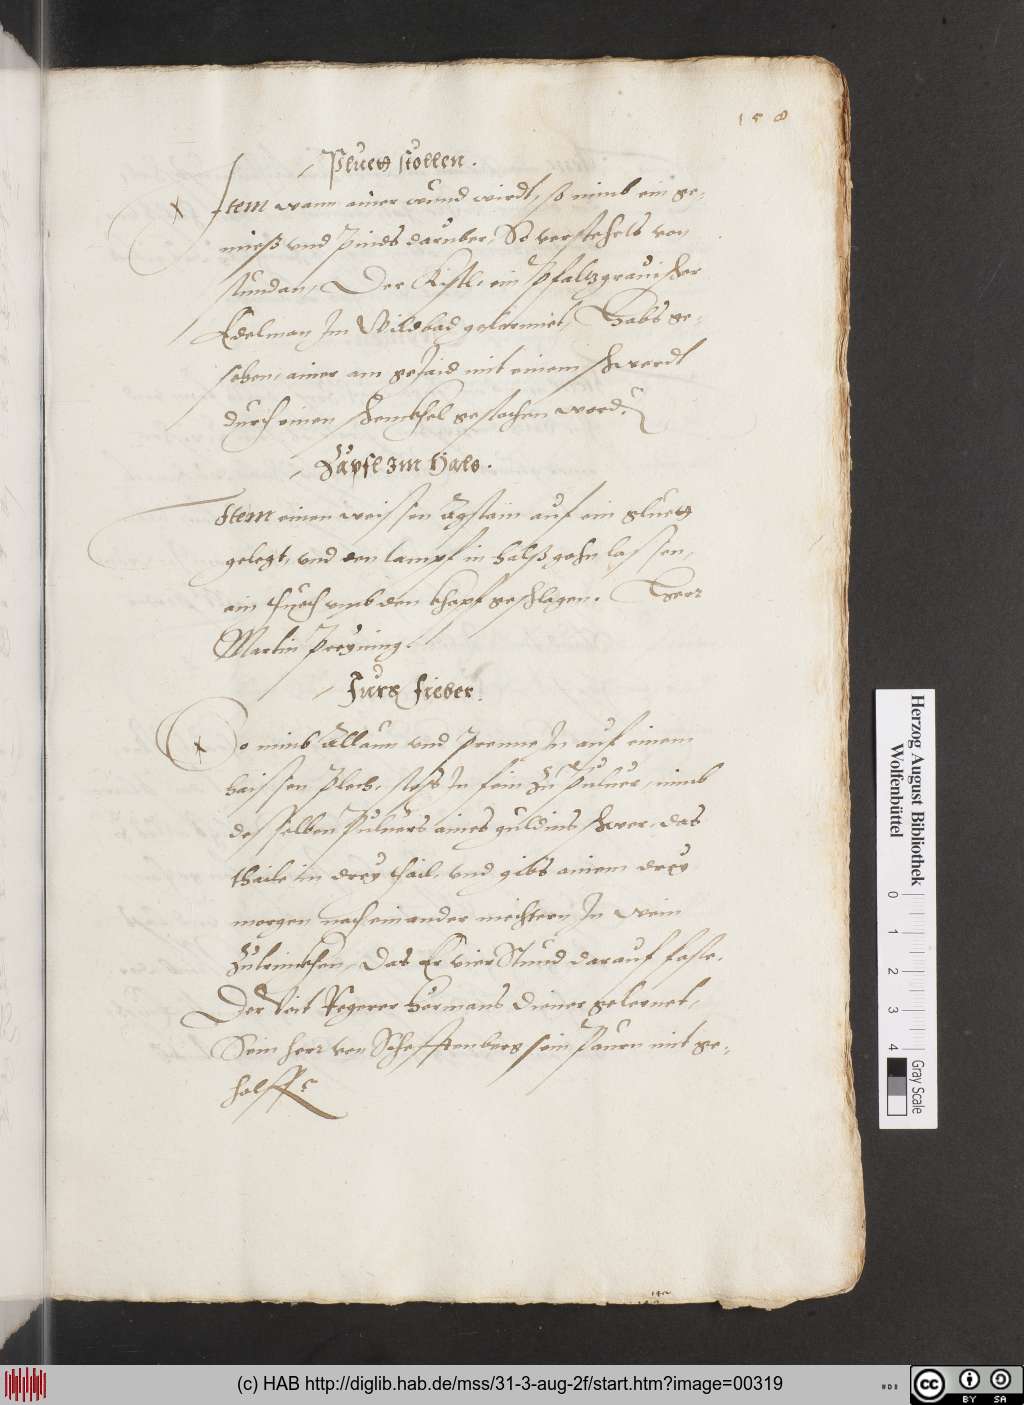 158
Pluett stollen.
Item wann ainer wundt wirdt, so nimb ein ge-
mieß vnd pinds daruber, So verstehets von
stundan, Der Kistl. ein Pfalzgrauischer
Edelman Im Wildbad gelernnet, Habs ge-
sehen, ainer am gejaid mit einem schwerdt
durch einen schenckhel gestochen word.
Zäpfl Im Hals.
Item einen weissen Agstain auf ein gluett
gelegt, vnd den tampf in halß gehn lassen,
ein thuech vmb den khopf geschlagen. Herr
Martin Preyning.
Fürs fieber.
So nimb Allaun vnd prenne In auf einem
haissen plech, stoß In fein Zu Puluer, nimb
desselben Puluers aines guldins schwer, das
thaile in drey thail, vnd gibs ainem drey
morgen nach einander niechtern In wein
Zutrinckhen, Das Er vier Stund darauf faste.
Der Veit Regerer Hörmans diener gelernet,
Sein herr von Schefftenberg sein Paurn mit ge-
holffen
Herzog August Bibliothek
Wolfenbüttel
0 1 2 3 4
Gray Scale
(c) HAB http://diglib.hab.de/mss/31-3-aug-2f/start.htm?image=00319
cc BY SA